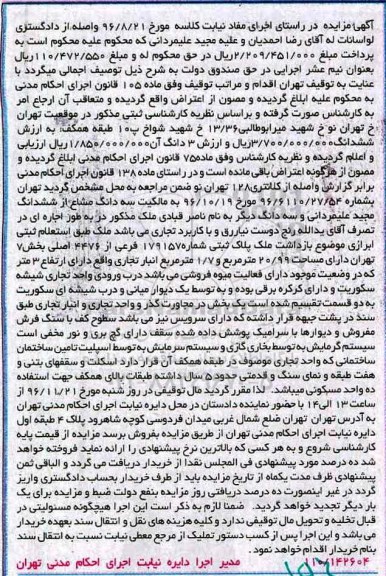 آگهی مزایده در راستای اجرای مفاد نیابت کلاسه مورخ ۹۶/۸/۲۱ واصله از دادگستری
لواسانات له آقای رضا احمدیان و علیه مجید علیمردانی که محکوم علیه محکوم است به
پرداخت مبلغ ۲/۲۰۹/۴۵۱/۰۰۰ریال در حق محکوم له و مبلغ ۱۱۰/۴۷۲/۵۵۰ریال
بعنوان نیم عشر اجرایی در حق صندوق دولت به شرح ذیل توصیف اجمالی میگردد با
عنایت به توقیف تهران اقدام و مراتب توقیف وفق ماده ۱۰۵ قانون اجرای احکام مدنی
به محکوم علیه ابلاغ گردیده و مصون از اعتراض واقع گردیده و متعاقب آن ارجاع امر
به کارشناس صورت گرفته و براساس نظریه کارشناسی ثبتی مذکور در موقعیت تهران
خ تهران نو خ شهید میرابوطالبی ۱۳/۳۶ خ شهید شواخ پ۱۰ طبقه همکف؛ به ارزش
ششدانگ ۳/۷۰۰/۰۰۰/۰۰۰ریال و ارزش ۳ دانگ آن۱/۸۵۰/۰۰۰/۰۰۰ریال ارزیابی
و اعلام گردیده و نظریه کارشناس وفق ماده۷۵ قانون اجرای احکام مدنی ابلاغ گردیده و
مصون از هرگونه اعتراض باقی مانده است و در راستای ماده ۱۳۸ قانون اجرای احکام مدنی
برابر گزارش واصله از کلانتری۱۲۸ تهران نو ضمن مراجعه به محل مشخص گردید تهران
بشماره ۹۶/۶۱۱۰/۲۷/۵۴ مورخ ۹۶/۱۰/۱۹ به مالکیت سه دانگ مشاع از ششدانگ
مجید علیمردانی و سه دانگ دیگر به نام ناصر قبادی ملک مذکور در به طور اجاره ای در
تصرف آقای یدالله رنج دوست نیاررق و با کاربرد تجاری می باشد ملک طبق استعلام ثبتی
ابرازی موضوع بازداشت ملک پلاک ثبتی شماره۱۷۹۱۵۷ فرعی از ۴۴۷۶ اصلی بخش۷
تهران دارای مساحت ۲۰/۹۹ مترمربع و ۱/۷ مترمربع انبار تجاری واقع دارای ارتفاع ۳ متر
که در وضعیت موجود دارای فعالیت میوه فروشی می باشد درب ورودی واحد تجاری شیشه
سکوریت و دارای کرکره برقی بوده و به توسط یک دیوار میانی و درب شیشه ای سکوریت
به دو قسمت تقسیم شده است یک بخش در مجاورت گذر و واحد تجاری و انبار تجاری طبق
سند در پشت جبهه قرار داشته که دارای سرویس نیز می باشد سطوح کف با سنگ فرش
مفروش و دیوارها با سرامیک پوشش داده شده سقف دارای گچ بری و نور مخفی است
سیستم گرمایش به توسط بخاری گازی و سیستم سرمایش به توسط اسپلیت تامین ساختمان
ساختمانی که واحد تجاری موصوف در طبقه همکف آن قرار دارد اسکلت و سقفهای بتنی و
هفت طبقه و نمای سنگ و قدمتی حدوده سال داشته طبقات بالای همکف جهت استفاده
ده واحد مسکونی میباشد. لذا مقرر گردید مال توقیفی در روز شنبه مورخ ۹۶/۱۱/۲۱ از
ساعت ۱۳ الی۱۴ با حضور نماینده دادستان در محل دایره نیابت اجرای احکام مدنی تهران
به آدرس تهران تهران ضلع شمال غربی میدان فردوسی کوچه شاهرود پلاک ۴ طبقه اول
دایره نیابت اجرای احکام مدنی تهران از طریق مزایده بفروش برسد مزایده از قیمت پایه
کارشناسی شروع و به هر کسی که بالاترین نرخ پیشنهادی را ارائه نماید فروخته خواهد
شد ده درصد مورد پیشنهادی فی المجلس نقدا از خریدار دریافت می گردد و الباقی ثمن
پیشنهادی ظرف مدت یکماه از تاریخ مزایده باید از طرف خریدار بحساب دادگستری واریز
گردد در غیر اینصورت ده درصد دریافتی روز مزایده بنفع دولت ضبط و مزایده برای یک
بار دیگر تجدید خواهد گردید. ضمنا لازم به ذکر است این اجرا هیچگونه مسئولیتی در
قبال تخلیه و تحویل مال توقیفی ندارد و کلیه هزینه های نقل و انتقال سند بعهده خریدار
می باشد و این اجرا پس از کسب دستور تملیک از مرجع معطی نیابت نسبت به انتقال سند
بنام خریدار اقدام خواهد نمود.
۱۱۰/۱۴۲۶۰۴ مدیر اجرا دایره نیابت اجرای احکام مدنی تهران